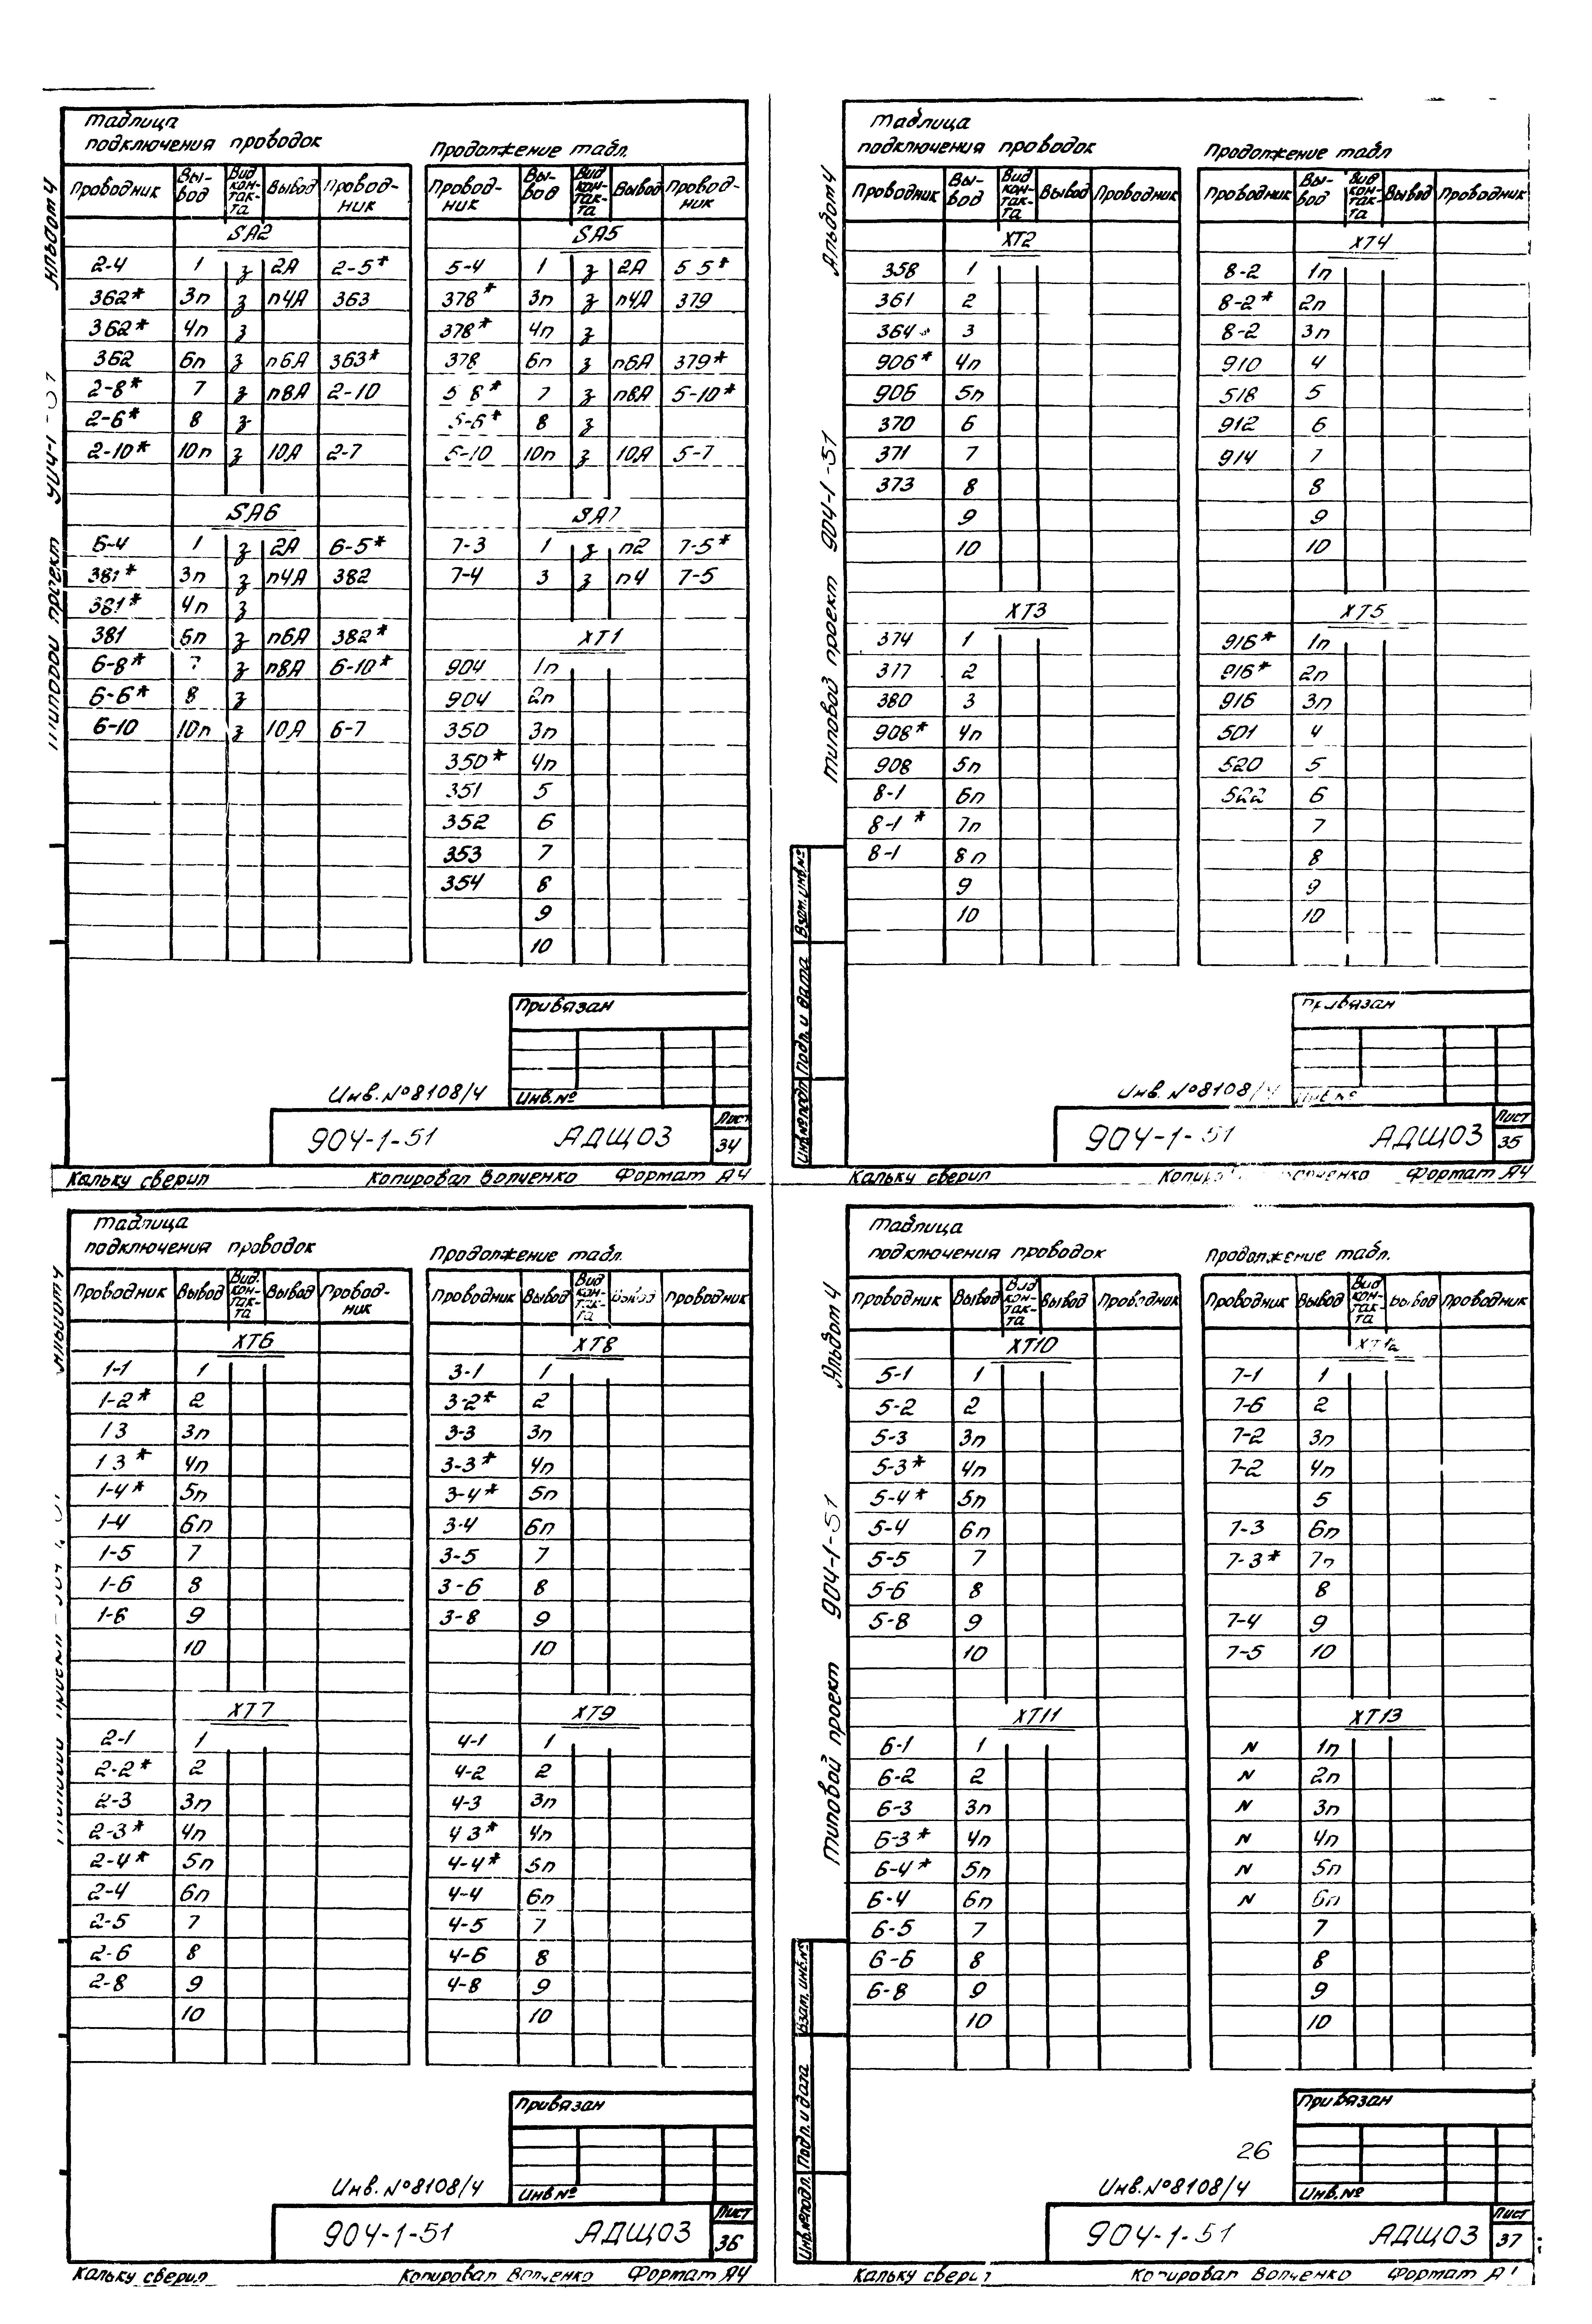 Таблица
подключения проводок
Продолжение табл.
Проводник Вы-вод Вид кон-так-та Вывод Провод-ник
Провод-ник Вы-вод Вид кон-так-та Вывод Провод-ник
SA2
2-4 1 з 2А 2-5*
362* 3п з п4А 363
362* 4п з
362 6п з п6А 363*
2-8* 7 з п8А 2-10
2-6* 8 з
2-10* 10п з 10А 2-7
SA6
6-4 1 з 2А 6-5*
381* 3п з п4А 382
381* 4п з
381 6п з п6А 382*
6-8* 7 з п8А 6-10*
6-6* 8 з
6-10 10п з 10А 6-7
SA5
5-4 1 з 2А 5 5*
378* 3п з п4А 379
378* 4п з
378 6п з п6А 379*
5 8* 7 з п8А 5-10*
5-6* 8 з
5-10 10п з 10А 5-7
SA7
7-3 1 з п2 7-5*
7-4 3 з п4 7-5
XT1
904 1п
904 2п
350 3п
350* 4п
351 5
352 6
353 7
354 8
9
10
Привязан
Инв.№
Инв.№8108/4
904-1-51 АДЩ03
Лист
34
Кальку сверил Копировал Волченко Формат А4
Альбом 4
Типовой проект 904-1-51
Таблица
подключения проводок
Продолжение табл
Проводник Вы-вод Вид кон-так-та Вывод Проводник
Проводник Вы-вод Вид кон-так-та Вывод Проводник
XT2
358 1
361 2
364* 3
906* 4п
906 5п
370 6
371 7
373 8
9
10
XT3
374 1
377 2
380 3
908* 4п
908 5п
8-1 6п
8-1* 7п
8-1 8п
9
10
XT4
8-2 1п
8-2* 2п
8-2 3п
910 4
518 5
912 6
914 7
8
9
10
XT5
916* 1п
916* 2п
916 3п
501 4
520 5
522 6
7
8
9
10
Альбом 4
Типовой проект 904-1-51
Взам. инв.№
Подп. и дата
Инв.№подл
Привязан
Инв.№
Инв.№8108/4
904-1-51 АДЩ03
Лист
35
Кальку сверил Копировал Волченко Формат А4
Таблица
подключения проводок
Продолжение табл.
Проводник Вывод Вид. кон-так-та Вывод Провод-ник
Проводник Вывод Вид кон-так-та Вывод Проводник
XT6
1-1 1
1-2* 2
1 3 3п
1 3* 4п
1-4* 5п
1-4 6п
1-5 7
1-6 8
1-6 9
10
XT7
2-1 1
2-2* 2
2-3 3п
2-3* 4п
2-4* 5п
2-4 6п
2-5 7
2-6 8
2-8 9
10
XT8
3-1 1
3-2* 2
3-3 3п
3-3* 4п
3-4* 5п
3-4 6п
3-5 7
3-6 8
3-8 9
10
XT9
4-1 1
4-2 2
4-3 3п
4 3* 4п
4-4* 5п
4-4 6п
4-5 7
4-6 8
4-8 9
10
Привязан
Инв.№
Инв.№8108/4
904-1-51 АДЩ03
Лист
36
Кальку сверил Копировал Волченко Формат А4
Таблица
подключения проводок
Продолжение табл.
Проводник Вывод Вид кон-так-та Вывод Проводник
Проводник Вывод Вид кон-так-та Вывод Проводник
XT10
5-1 1
5-2 2
5-3 3п
5-3* 4п
5-4* 5п
5-4 6п
5-5 7
5-6 8
5-8 9
10
XT11
6-1 1
6-2 2
6-3 3п
6-3* 4п
6-4* 5п
6-4 6п
6-5 7
6-6 8
6-8 9
10
7-1 1
7-6 2
7-2 3п
7-2 4п
5
7-3 6п
7-3* 7п
8
7-4 9
7-5 10
XT13
N 1п
N 2п
N 3п
N 4п
N 5п
N 6п
7
8
9
10
Альбом 4
Типовой проект 904-1-51
Взам. инв.№
Подп. и дата
Инв.№подл.
Привязан
26
Инв.№
Инв.№8108/4
904-1-51 АДЩ03
Лист
37
Кальку сверил Копировал Волченко Формат А